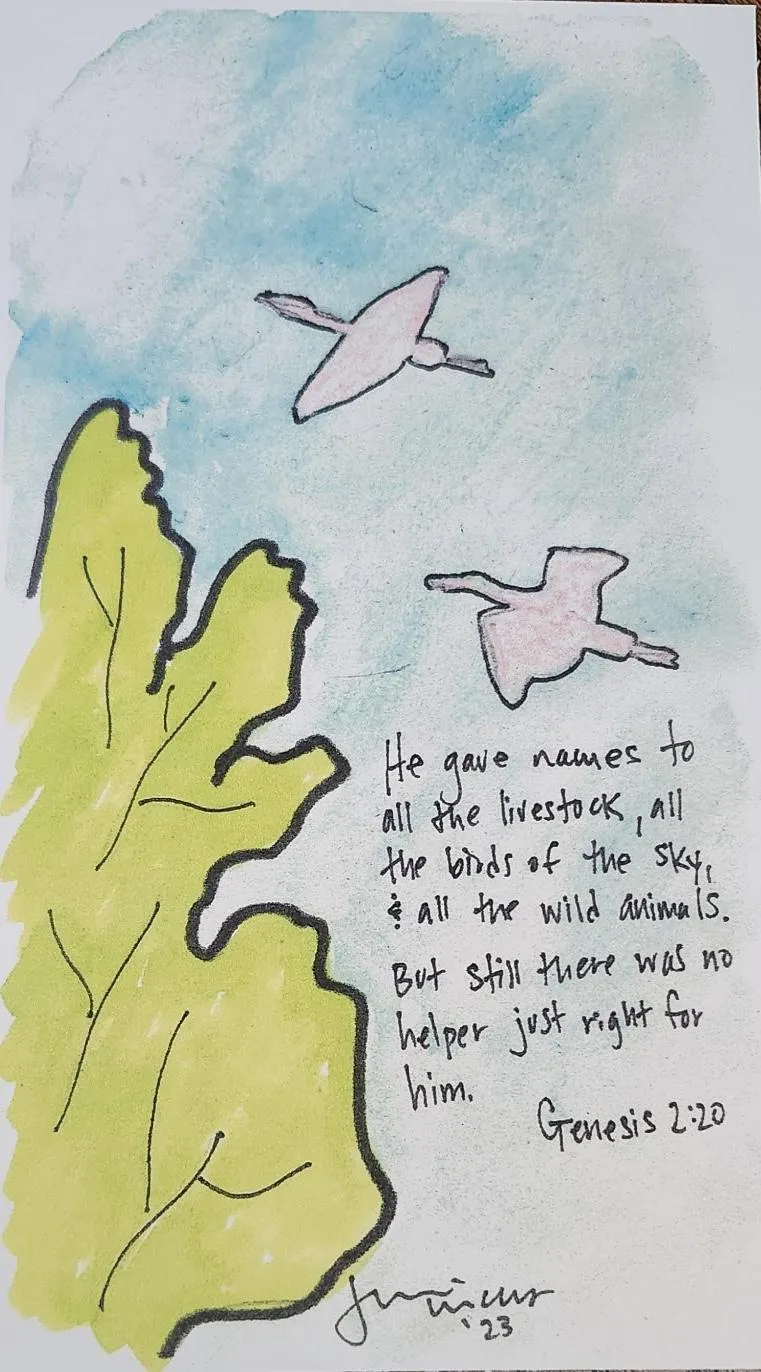 He gave names to
all the livestock, all
the birds of the sky,
& all the wild animals.
But still there was no
helper just right for
him.
Genesis 2:20
'23